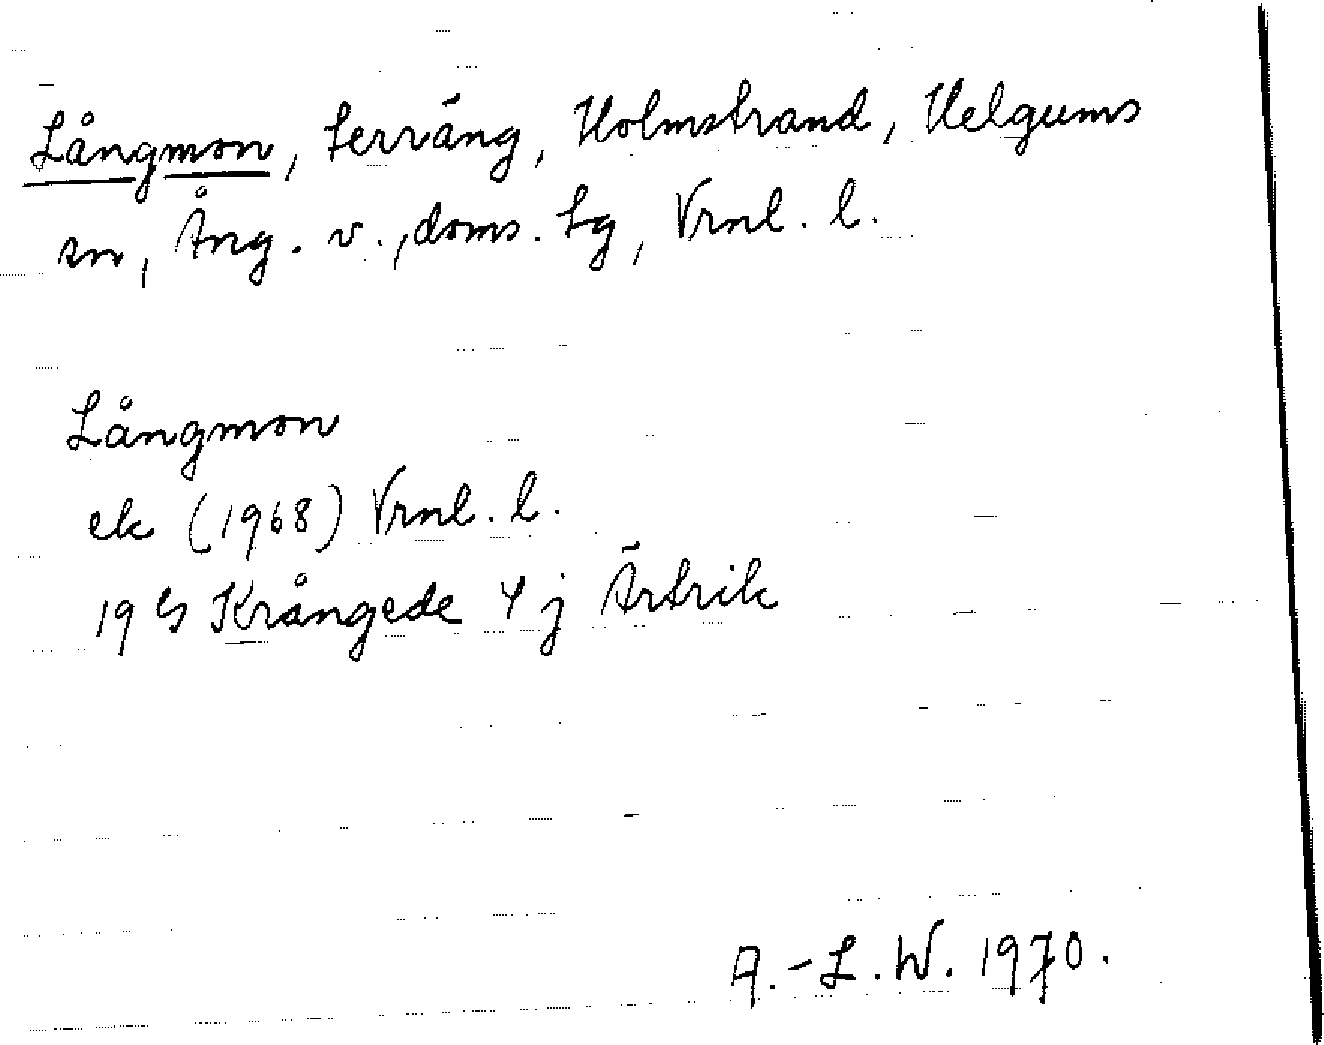 Långmon, terräng, Holmstrand, Helgums
sn, Ång. v., doms. tg, Vrnl. l.
Långmon
ek (1968) Vrnl. l.
19 G Krångede 4 j Ärtrik
A.-L. W. 1970.